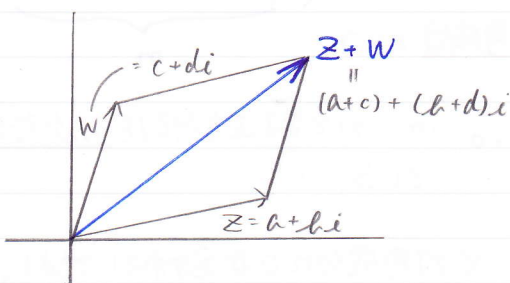 = c+di
Z+W
||
(a+c) + (b+d)i
W
Z=a+bi